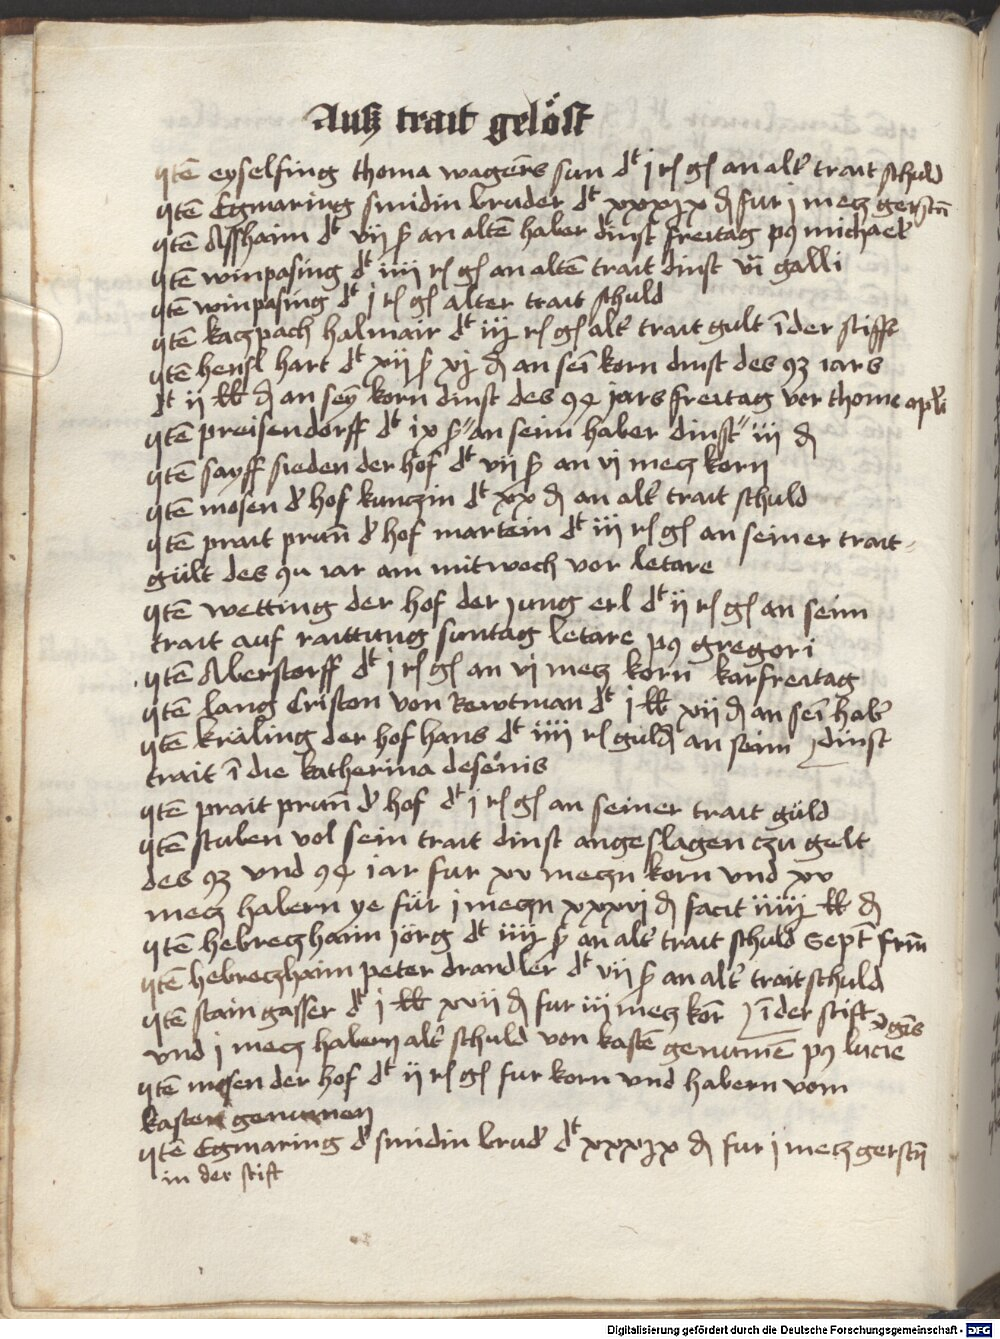 Auß trait gelöst
Itẽ eyselfing thoma wagerñs sun dt j rl gl an altr trait schuld
Itẽ Egmaring smidin bruder dt xxxjx d fur j mecz gerstñ
Itẽ Affhaim dt vij ß an altẽ haber dinst freitag p9 michael
Itẽ winpasing dt iiij rl gl an altẽ trait dinst vĩ galli
Itẽ winpasing dt j rl gl alter trait schuld
Itẽ kaczpach halmair dt iij rl gl altr trait gult ĩ der stifft
Itẽ hensl hart dt xij ß xj d an seĩ korn dinst des 93 iars
dt ij lb d an seÿ korn dinst des 94 jars freitag vor thome apli
Itẽ preisendorff dt ix ß an seim haber dinst iij d
Itẽ sayff sieden der hof dt vij ß an vj mecz korn
Itẽ mosen dr hof kunczin dt xx d an altr trait schuld
Itẽ prait prun̄ dr hof martein dt iij rl gl an seiner trait
gült des 92 iar am mitwoch vor letare
Itẽ wetting der hof der jung erl dt ij rl gl an seim
trait auf raittung suntag letare p9 gregori
Itẽ Alberstorff dt j rl gl an vj mecz korn karfreitag
Itẽ lang Criston von Rewtman dt j lb xij d an seĩ habr
Itẽ kräling der hof hans dt iiij rl guldr an seim dinst
trait ĩ die katherina desenis
Itẽ prait prun̄ dr hof dt j rl gl an seiner trait güld
Itẽ stuben vol sein trait dinst angeslagen czu gelt
des 93 vnd 94 iar fur xv meczn korn vnd xv
mecz habern ye für j meczn xxxvj d facit iiij lb d
Itẽ hebreczhaim jörg dt iiij ß an altr trait schuld Sept frm̃
Itẽ hebreczhaim peter drandler dt vij ß an altr traitschuld
Itẽ staingasser dt j lb xvij d fur iij mecz kor̃ ĩ der stift
vnd j mecz habern altr schuld von kastẽ genumẽ p9 lucie vgĩs
Itẽ mosen der hof dt ij rl gl fur korn vnd habern vom
kasten genumen
Itẽ Egmaring dr smidin brudr dt xxxjx d fur j mecz gerstñ
in der stift
Digitalisierung gefördert durch die Deutsche Forschungsgemeinschaft - DFG